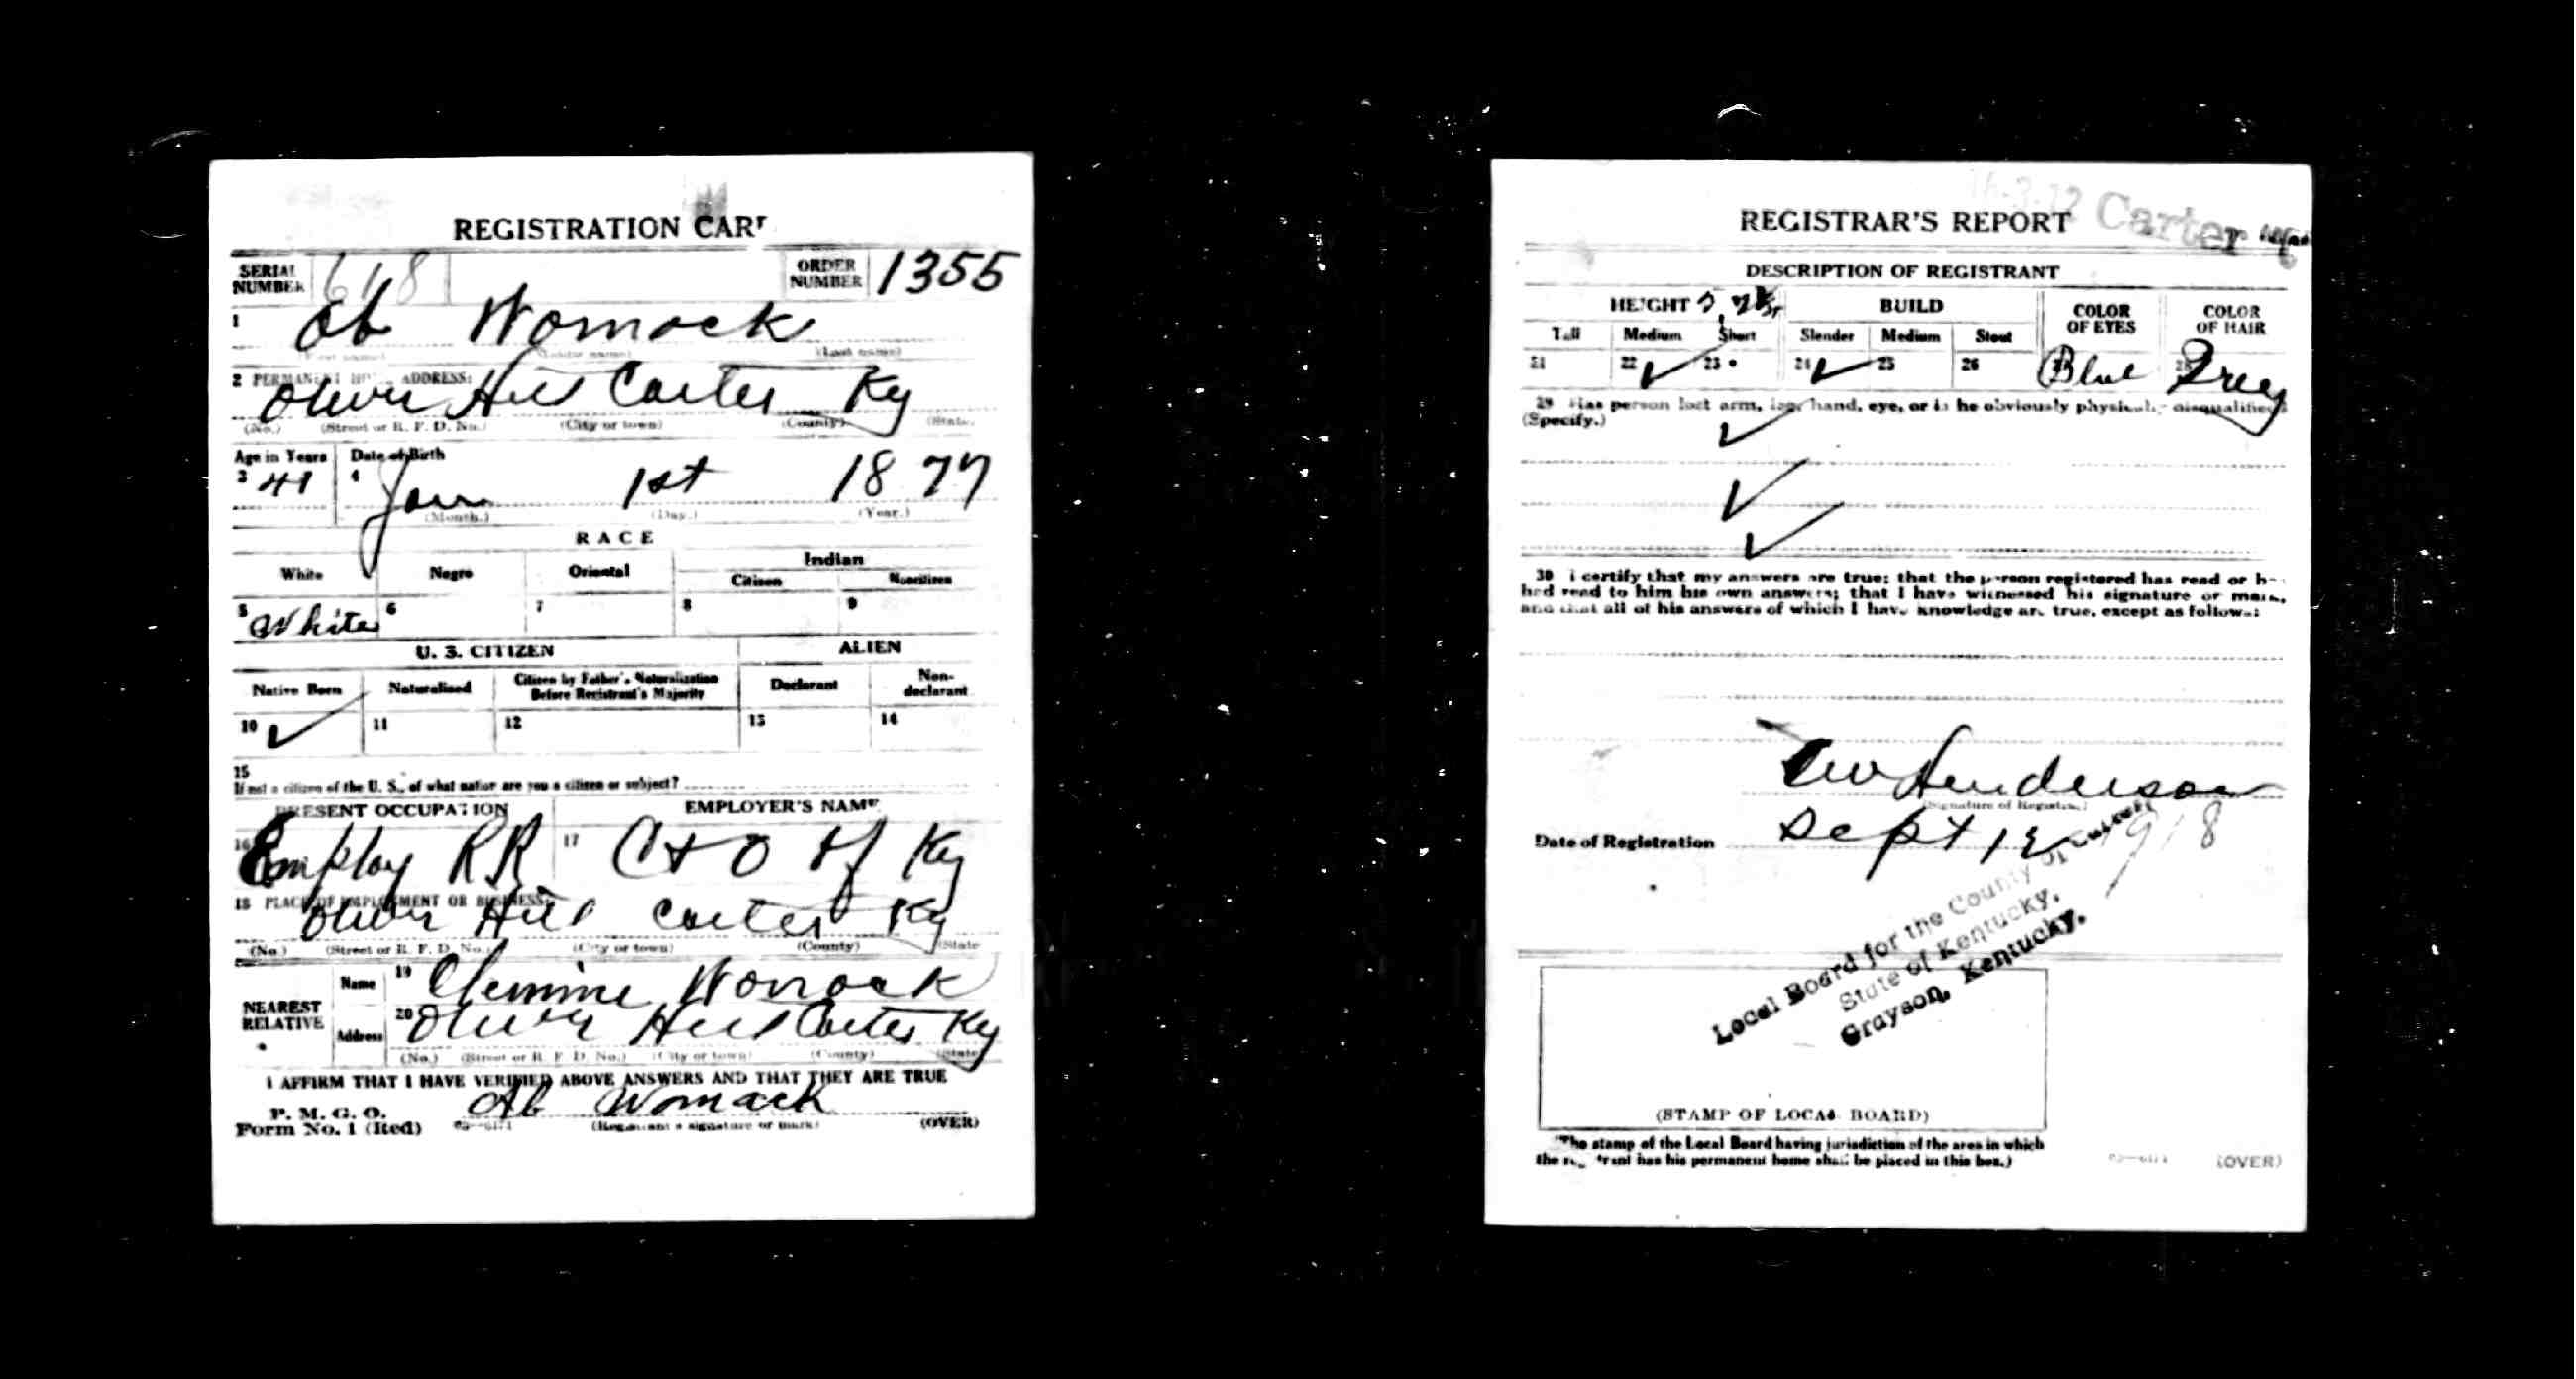 REGISTRATION CAR
SERIAL NUMBER 618 ORDER NUMBER 1355
1 Ab Womack
(First name) (Middle name) (Last name)
2 PERMANENT HOME ADDRESS:
Oliver Hill Carter Ky
(No.) (Street or R. F. D. No.) (City or town) (County) (State)
Age in Years Date of Birth
3 41 4 Jan 1st 1877
(Month.) (Day.) (Year.)
RACE
White Negro Oriental Indian
Citizen Noncitizen
5 White 6 7 8 9
U. S. CITIZEN ALIEN
Native Born Naturalized Citizen by Father's Naturalization Before Registrant's Majority Declarant Non-declarant
10 ✓ 11 12 13 14
15
If not a citizen of the U. S., of what nation are you a citizen or subject?
PRESENT OCCUPATION EMPLOYER'S NAME
16 Employ RR 17 C + O of Ky
18 PLACE OF EMPLOYMENT OR BUSINESS:
Oliver Hill Carter Ky
(No.) (Street or R. F. D. No.) (City or town) (County) (State)
NEAREST RELATIVE Name 19 Clemine Womack
Address 20 Oliver Hill Carter Ky
(No.) (Street or R. F. D. No.) (City or town) (County) (State)
I AFFIRM THAT I HAVE VERIFIED ABOVE ANSWERS AND THAT THEY ARE TRUE
P. M. G. O.
Form No. 1 (Red) Ab Womack
(Registrant's signature or mark) (OVER)
REGISTRAR'S REPORT Carter
DESCRIPTION OF REGISTRANT
HEIGHT BUILD COLOR OF EYES COLOR OF HAIR
Tall Medium Short Slender Medium Stout
21 22 ✓ 23 24 ✓ 25 26 27 Blue 28 Grey
29 Has person lost arm, leg, hand, eye, or is he obviously physically disqualified?
(Specify.)
✓
✓
✓
30 I certify that my answers are true; that the person registered has read or has
had read to him his own answers; that I have witnessed his signature or mark,
and that all of his answers of which I have knowledge are true, except as follows:
Henderson
(Signature of Registrar)
Date of Registration Sept 12 1918
Local Board for the County of Carter
State of Kentucky,
Grayson, Kentucky.
(STAMP OF LOCAL BOARD)
(The stamp of the Local Board having jurisdiction of the area in which
the registrant has his permanent home shall be placed in this box.)
03—6171 (OVER)